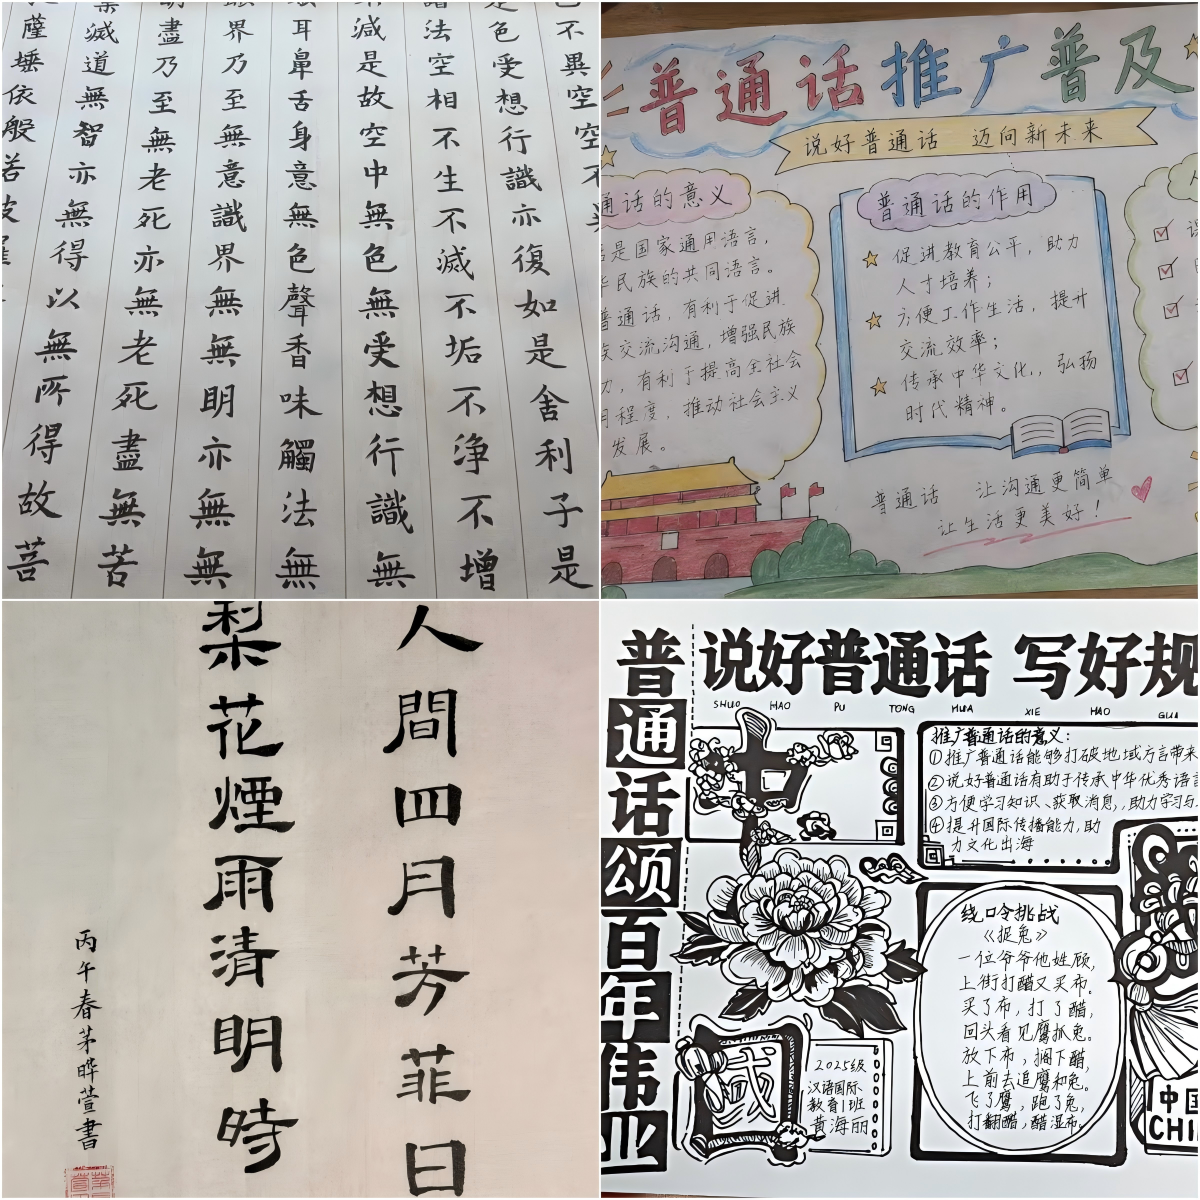 不異空空不
是色受想行識亦復如是舍利子是
諸法空相不生不滅不垢不净不增
減是故空中無色無受想行識無
耳鼻舌身意無色聲香味觸法無
界乃至無意識界無無明亦無無
明盡乃至無老死亦無老死盡無苦
集滅道無智亦無得以無所得故菩
薩埵依般若波羅
普通话推广普及
说好普通话 迈向新未来
通话的意义
是国家通用语言，
华民族的共同语言。
普通话，有利于促进
族交流沟通，增强民族
力，有利于提高全社会
用程度，推动社会主义
发展。
普通话的作用
促进教育公平，助力
人才培养；
方便工作生活，提升
交流效率；
传承中华文化，，弘扬
时代精神。
普通话 让沟通更简单
让生活更美好！
人間四月芳菲日
梨花煙雨清明時
丙午春茅晔萱書
普通话颂百年伟业
说好普通话 写好规
SHUO HAO PU TONG HUA XIE HAO GUI
中
推广普通话的意义：
①推广普通话能够打破地域方言带来
②说好普通话有助于传承中华优秀语言
③方便学习知识、获取消息，，助力学习与
④提升国际传播能力，助
力文化出海
绕口令挑战
《捉兔》
一位爷爷他姓顾，
上街打醋又买布。
买了布，打了醋，
回头看见鹰抓兔。
放下布，搁下醋，
上前去追鹰和兔。
飞了鹰，跑了兔，
打翻醋，醋湿布。
國
2025级
汉语国际
教育1班
黄海丽
中国
CHI